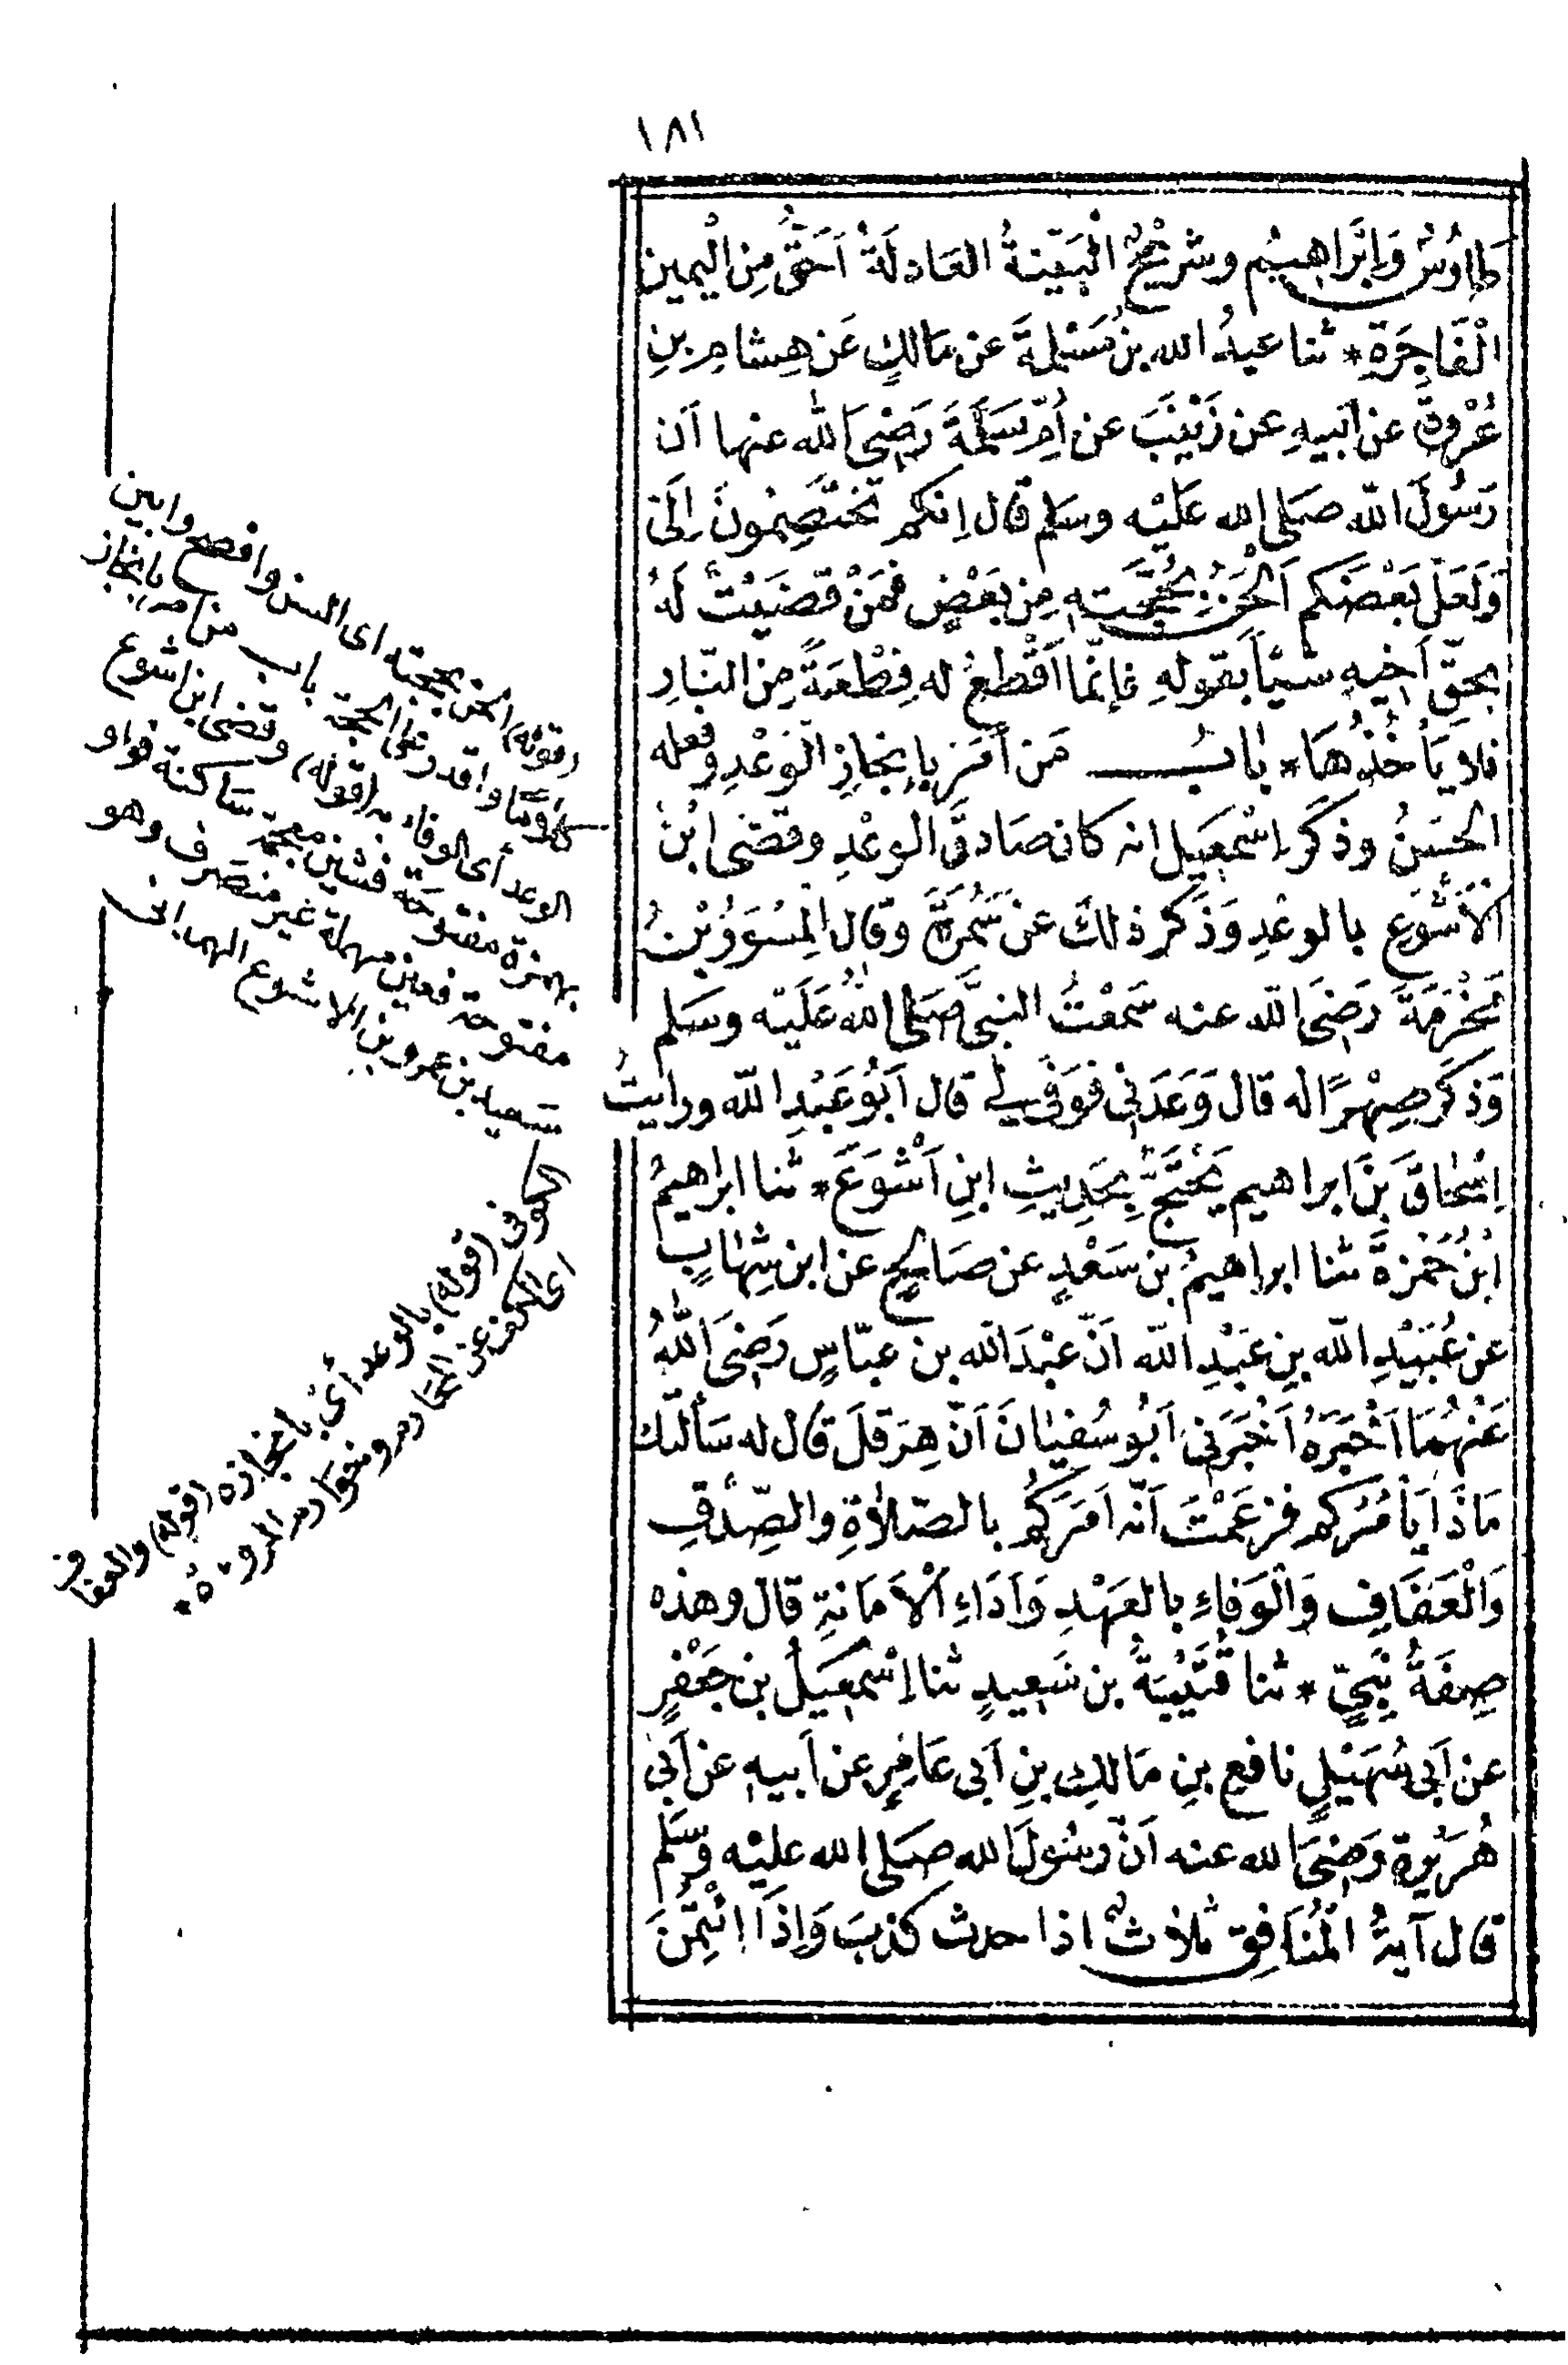 ١٨١
طاوُسٌ وَإِبْرَاهِيمُ وشُرَيْحٌ الْبَيِّنَةُ العَادِلَةُ أَحَقُّ مِنَ الْيَمِينِ
الْفَاجِرَةِ * ثنا عبدُ الله بنُ مَسْلَمَةَ عن مَالكٍ عَن هِشَامِ بنِ
عُرْوةَ عن أبيهِ عن زَيْنَبَ عن أُمِّ سَلَمَةَ رَضِىَ الله عنها أَن
رَسُولَ اللّه صَلى الله عَليْه وسَلم قال إِنكم تَخْتَصِمُونَ إِلَىَّ
وَلَعَلّ بَعْضَكم أَلْحَنُ بِحُجَّتِهِ مِن بَعْضٍ فَمَنْ قَضَيْتُ لَهُ
بحقِّ أَخِيهِ شَيْأً بقولهِ فإنّما أَقْطَعُ له قِطْعَةً مِنَ النّارِ
فلا يَأْخُذْهَا * بابُ مَن أَمَرَ بإِنجازِ الْوَعْدِ وفعله
الحسَنُ وذكَر إِسْمٰعِيل انه كان صَادِقَ الوعْدِ وقضى ابْنُ
الأَشْوَعِ بالوعْدِ وَذَكَر ذلكَ عن سَمُرَةَ وقال الْمِسْوَرُ بْنُ
مَخْرَمَةَ رَضِىَ اللّه عنه سَمعْتُ النبىَّ صَلى اللّهُ عَلَيْه وسَلم
وَذكَر صِهْرًا له قال وَعَدَنِى فوَفَى لِى قال أَبُو عَبْدِ اللّه ورأيتُ
إِسْحٰاقَ بنَ ابراهيم يَحْتَجُّ بِحَدِيثِ ابنِ أَشْوَعَ * ثنا ابراهيمُ
ابْنُ حَمْزةَ ثنا ابراهيمُ بن سَعْدٍ عن صَالحٍ عن ابن شِهٰابٍ
عن عُبَيْدِ اللّه بنِ عَبْدِ اللّه أنّ عَبْدَ اللّه بن عبّاسٍ رَضِىَ اللّٰهُ
عَنْهُمَا أَخْبَرَهُ أَخْبَرَنِى أَبُو سُفيٰانَ أَنّ هِرَقلَ قال له سَألتك
مَاذَا يَأْمُرُكم فزعَمْتَ أَنّه أَمَرَكُم بالصّلاٰةِ والصِّدْقِ
وَالْعَفَافِ وَالْوَفاءِ بالعَهْدِ وَأَدَاءِ الْأَمَانةِ قال وهذه
صِفَةُ نَبِىٍّ * ثنا قُتَيْبَةُ بن سَعِيدٍ ثنا إِسْمٰعِيلُ بن جَعْفرٍ
عن أبى سُهَيْلٍ نافعِ بنِ مَالكِ بنِ أبى عَامِرٍ عن أَبيهِ عن أَبى
هُرَيْرةَ رَضِىَ الله عنه أَنّ رسُولَ الله صَلى الله عليْه وسَلم
قال آيةُ الْمُنَافِقِ ثَلاثٌ اذا حدث كذبَ وَإِذَا ائْتُمِنَ
(قوله) الحن بحجته اى السن وافصح وابين
كلاما واقدر على الحجة باب من امر بانجاز
الوعد أى الوفاء به (قوله) وقضى ابن اشوع
بهمزة مفتوحة فشين معجمة ساكنة فواو
مفتوحة فعين مهملة غير منصرف وهو
سعيد بن عمرو بن الاشوع الهمدانى
الكوفى (قوله) بالوعد أى بانجازه (قوله) والعفاف
اى الكف عن المحارم وخوارم المروءة *